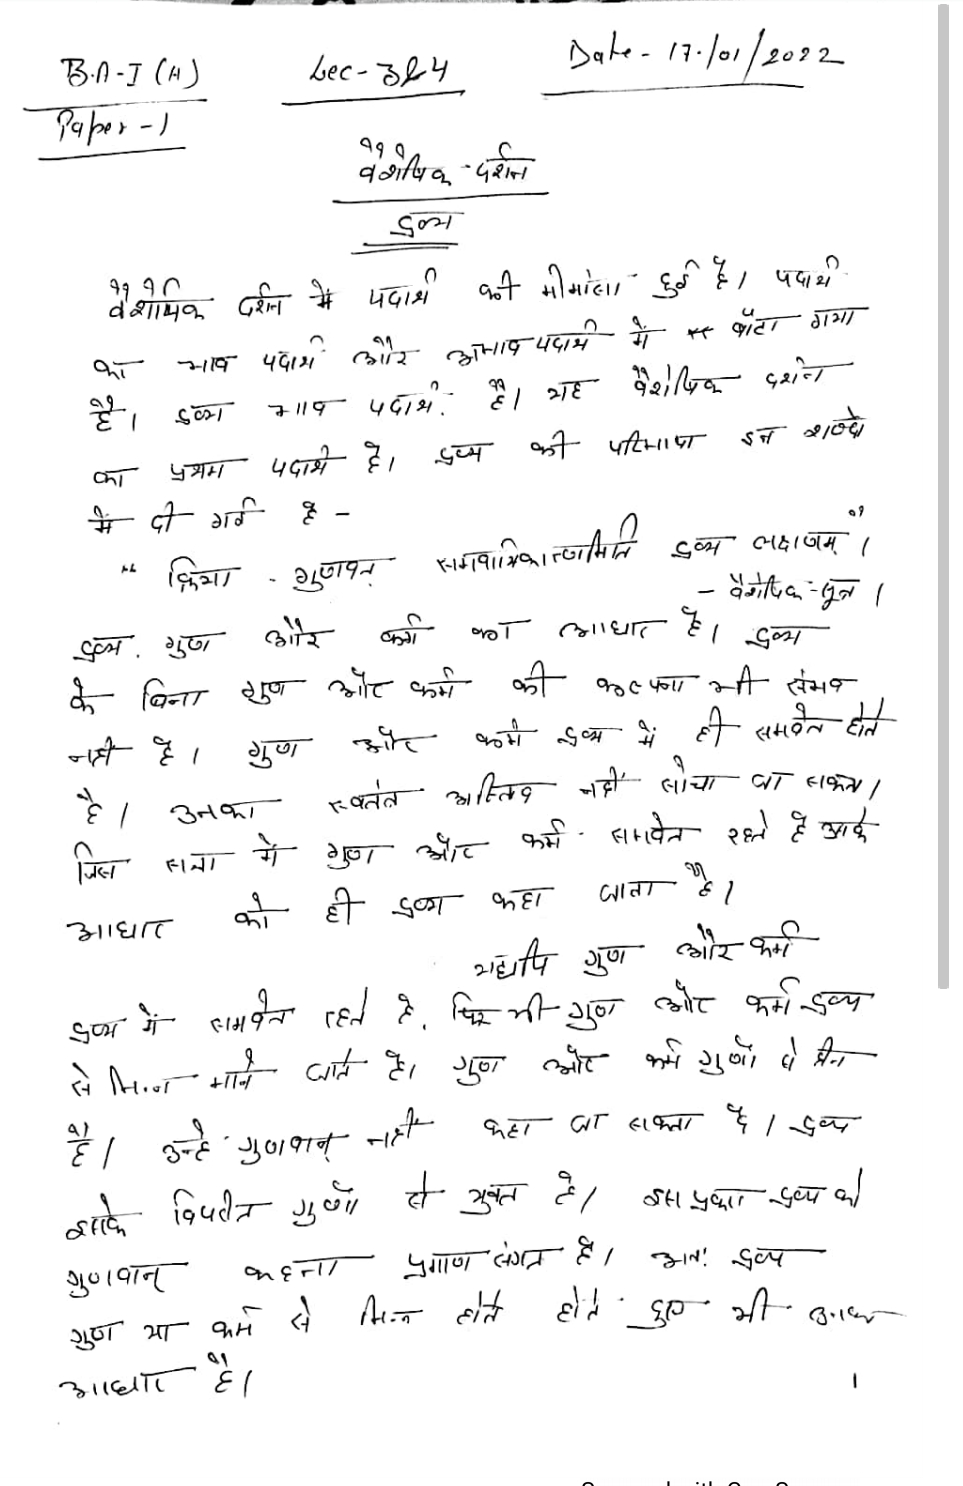 B.A-I (H) Lec-3&4 Date- 17/01/2022
Paper-1
वैशेषिक-दर्शन
द्रव्य
वैशेषिक दर्शन में पदार्थ की मीमांसा हुई है। पदार्थ
को भाव पदार्थ और अभाव पदार्थ में बाँटा गया
है। द्रव्य भाव पदार्थ है। यह वैशेषिक दर्शन
का प्रथम पदार्थ है। द्रव्य की परिभाषा इन शब्दों
में दी गई है -
“ क्रिया - गुणवत् समवायिकारणमिति द्रव्य लक्षणम् ।”
- वैशेषिक-सूत्र ।
द्रव्य, गुण और कर्म का आधार है। द्रव्य
के बिना गुण और कर्म की कल्पना भी संभव
नहीं है। गुण और कर्म द्रव्य में ही समवेत होते
है। उनका स्वतंत अस्तित्व नहीं सोचा जा सकता।
जिस सत्ता में गुण और कर्म समवेत रहते है उसके
आधार को ही द्रव्य कहा जाता है।
यद्यपि गुण और कर्म
द्रव्य में समवेत रहते है, फिर भी गुण और कर्म द्रव्य
से भिन्न माने जाते है। गुण और कर्म गुणों से हीन
है। उन्हे गुणवान् नहीं कहा जा सकता है। द्रव्य
इसके विपरीत गुणों से युक्त है। इस प्रकार द्रव्य को
गुणवान् कहना प्रमाण संगत है। अतः द्रव्य
गुण या कर्म से भिन्न होते होते हुए भी उनका
आधार है।
1